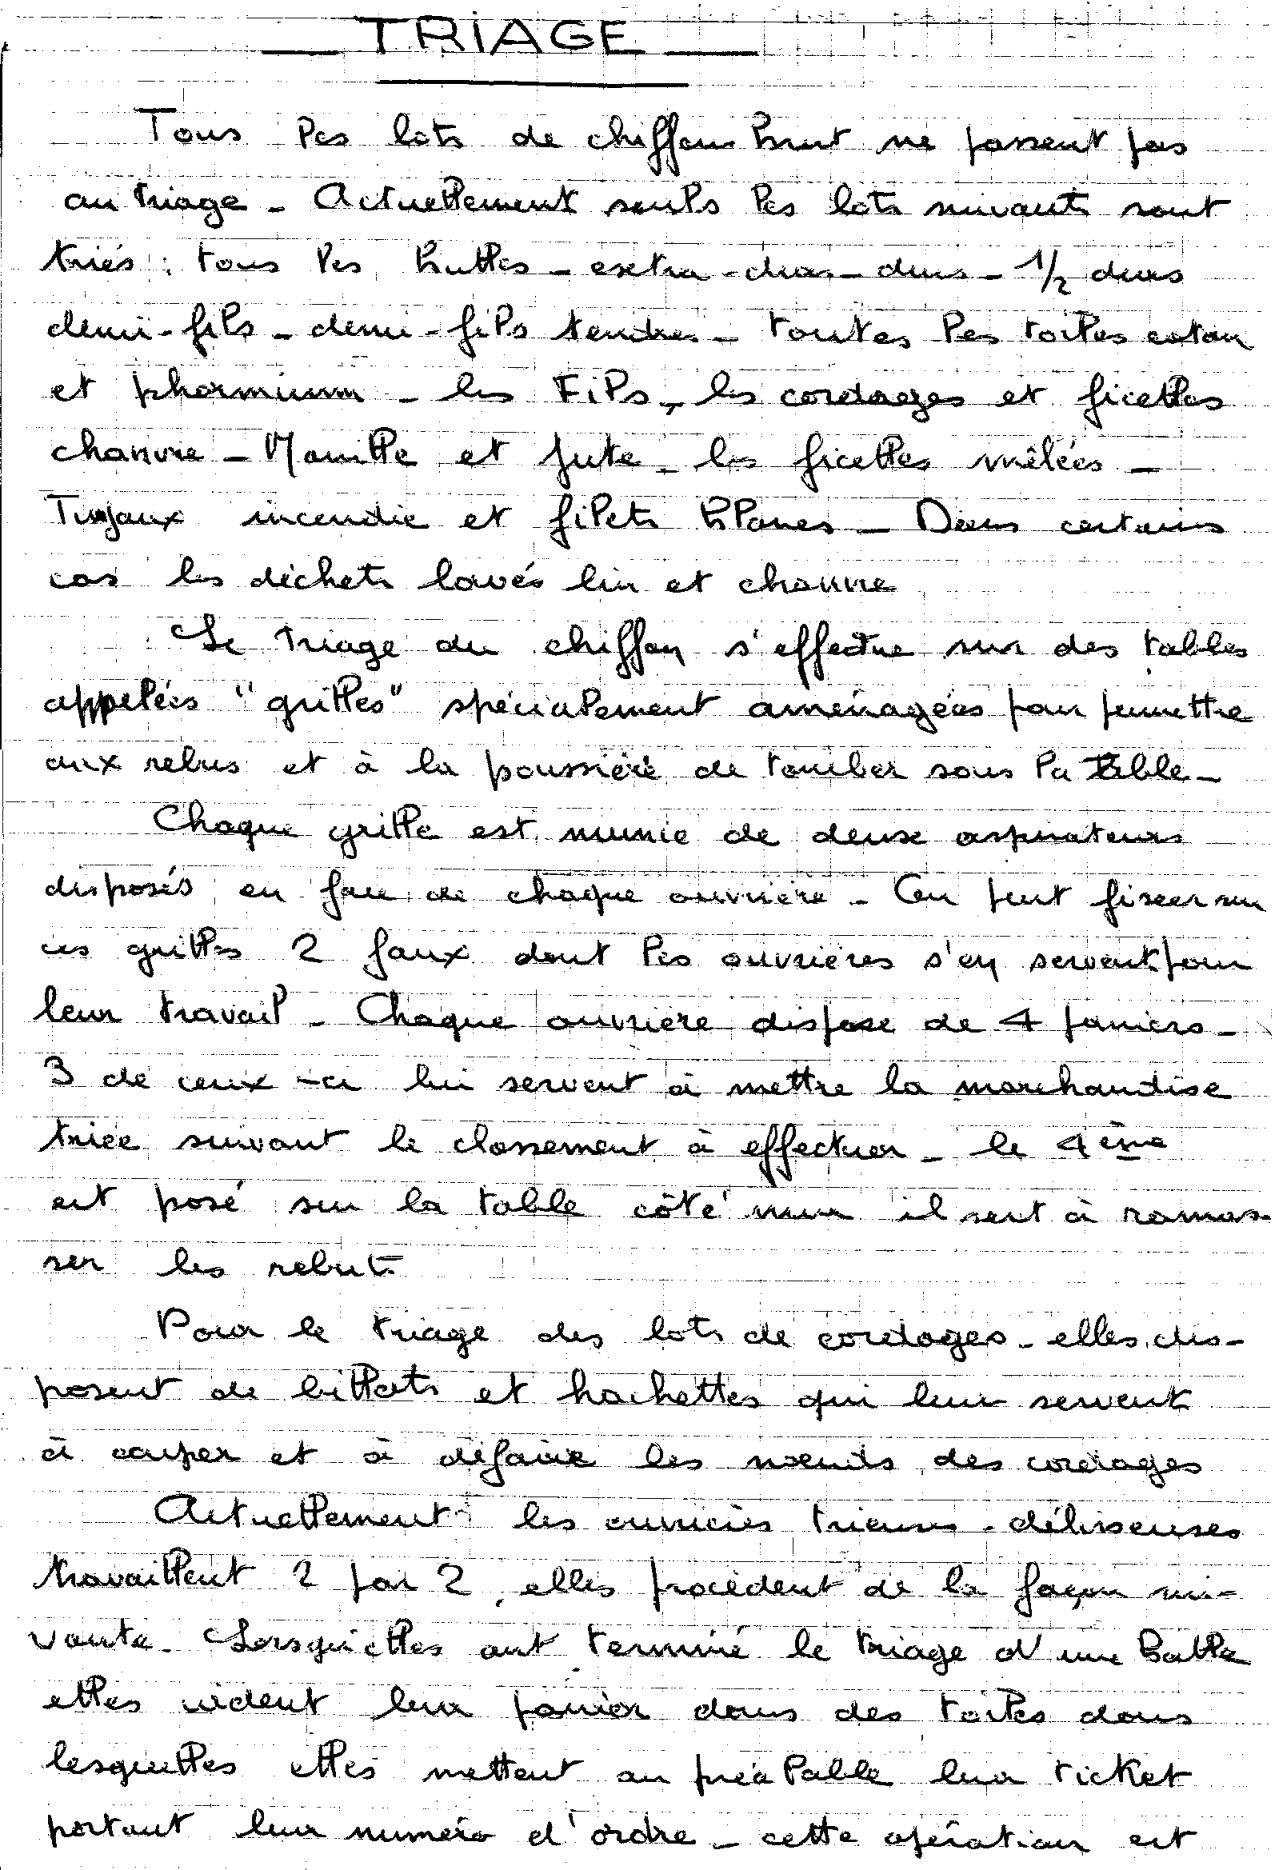 — TRIAGE —
Tous les lots de chiffons brut ne passent pas
au triage - Actuellement seuls les lots suivants sont
triés : tous les bulles - extra - durs - durs - 1/2 durs
demi-fils - demi-fils tendres - toutes les toiles coton
et phormium - les Fils, les cordages et ficelles
chanvre - Manille et jute - les ficelles mêlées -
Tuyaux incendie et filets blancs - Dans certains
cas les déchets lavés lin et chanvre
Le triage du chiffon s'effectue sur des tables
appelées "grilles" spécialement aménagées pour permettre
aux rebus et à la poussière de tomber sous la table -
Chaque grille est munie de deux aspirateurs
disposés en face de chaque ouvrière - On peut fixer sur
ces grilles 2 faux dont les ouvrières s'en servent pour
leur travail - Chaque ouvrière dispose de 4 paniers -
3 de ceux-ci lui servent à mettre la marchandise
triée suivant le classement à effectuer - le 4ème
est posé sur la table côté mur il sert à ramas-
ser les rebuts
Pour le triage des lots de cordages - elles dis-
posent de billots et hachettes qui leur servent
à couper et à défaire les noeuds des cordages
Actuellement les ouvrières trieuses - délisseuses
travaillent 2 par 2, elles procèdent de la façon sui-
vante - Lorsqu'elles ont terminé le triage d'une Balle
elles vident leur panier dans des toiles dans
lesquelles elles mettent au préalable leur ticket
portant leur numéro d'ordre - cette opération est